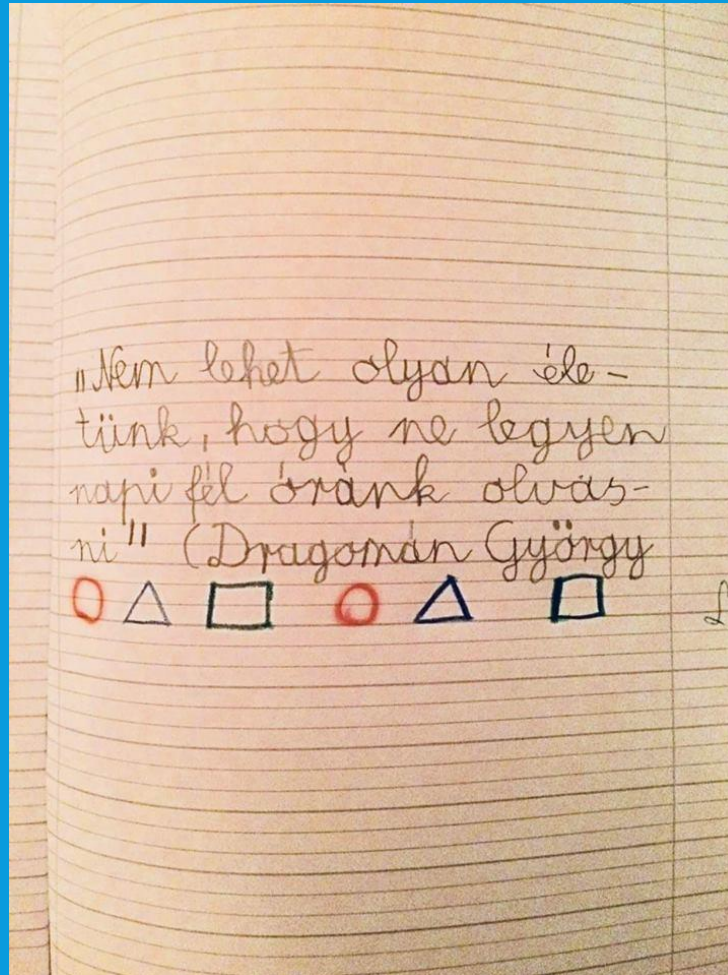 „Nem lehet olyan éle-
tünk, hogy ne legyen
napi fél óránk olvas-
ni" (Dragomán György